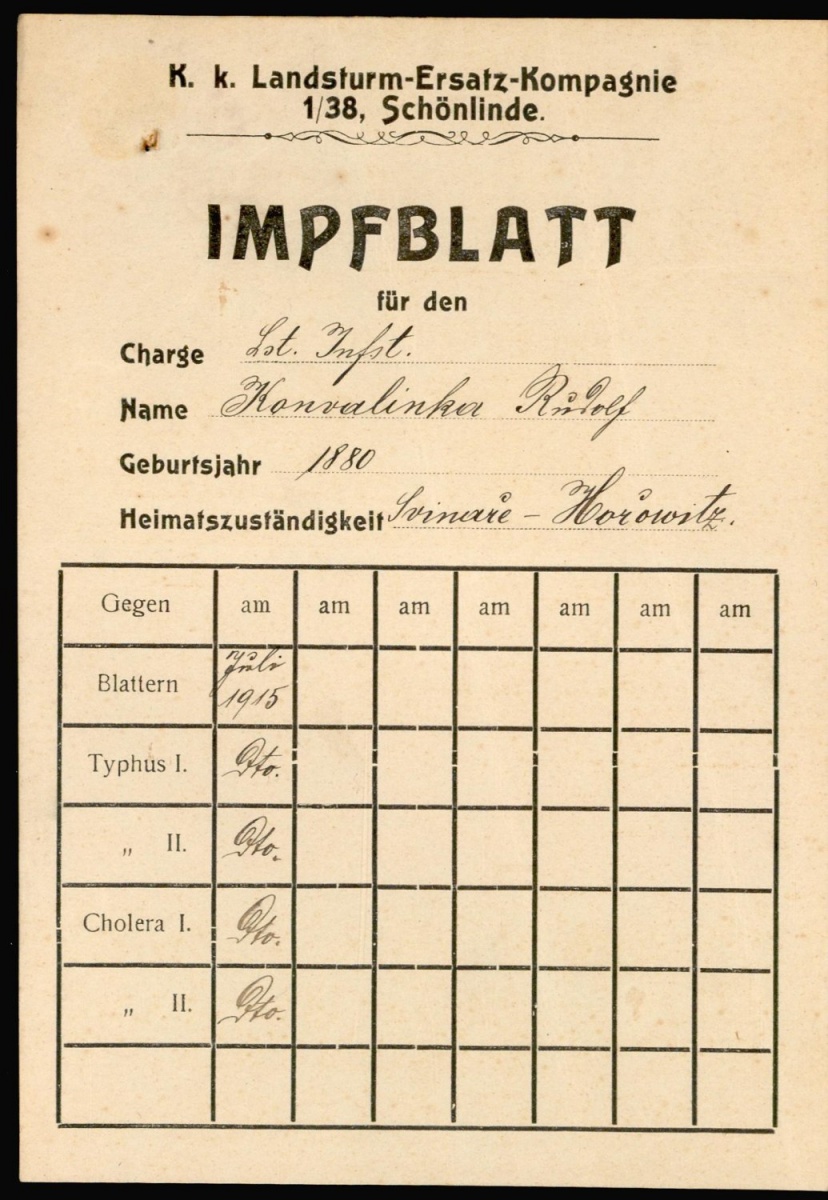 K. k. Landsturm-Ersatz-Kompagnie
1/38, Schönlinde.
IMPFBLATT
für den
Charge Lst. Infst.
Name Konvalinka Rudolf
Geburtsjahr 1880
Heimatszuständigkeit Svinaře – Hořowitz.
Gegen am am am am am am am
Blattern Juli 1915
Typhus I. Dto.
„ II. Dto.
Cholera I. Dto.
„ II. Dto.